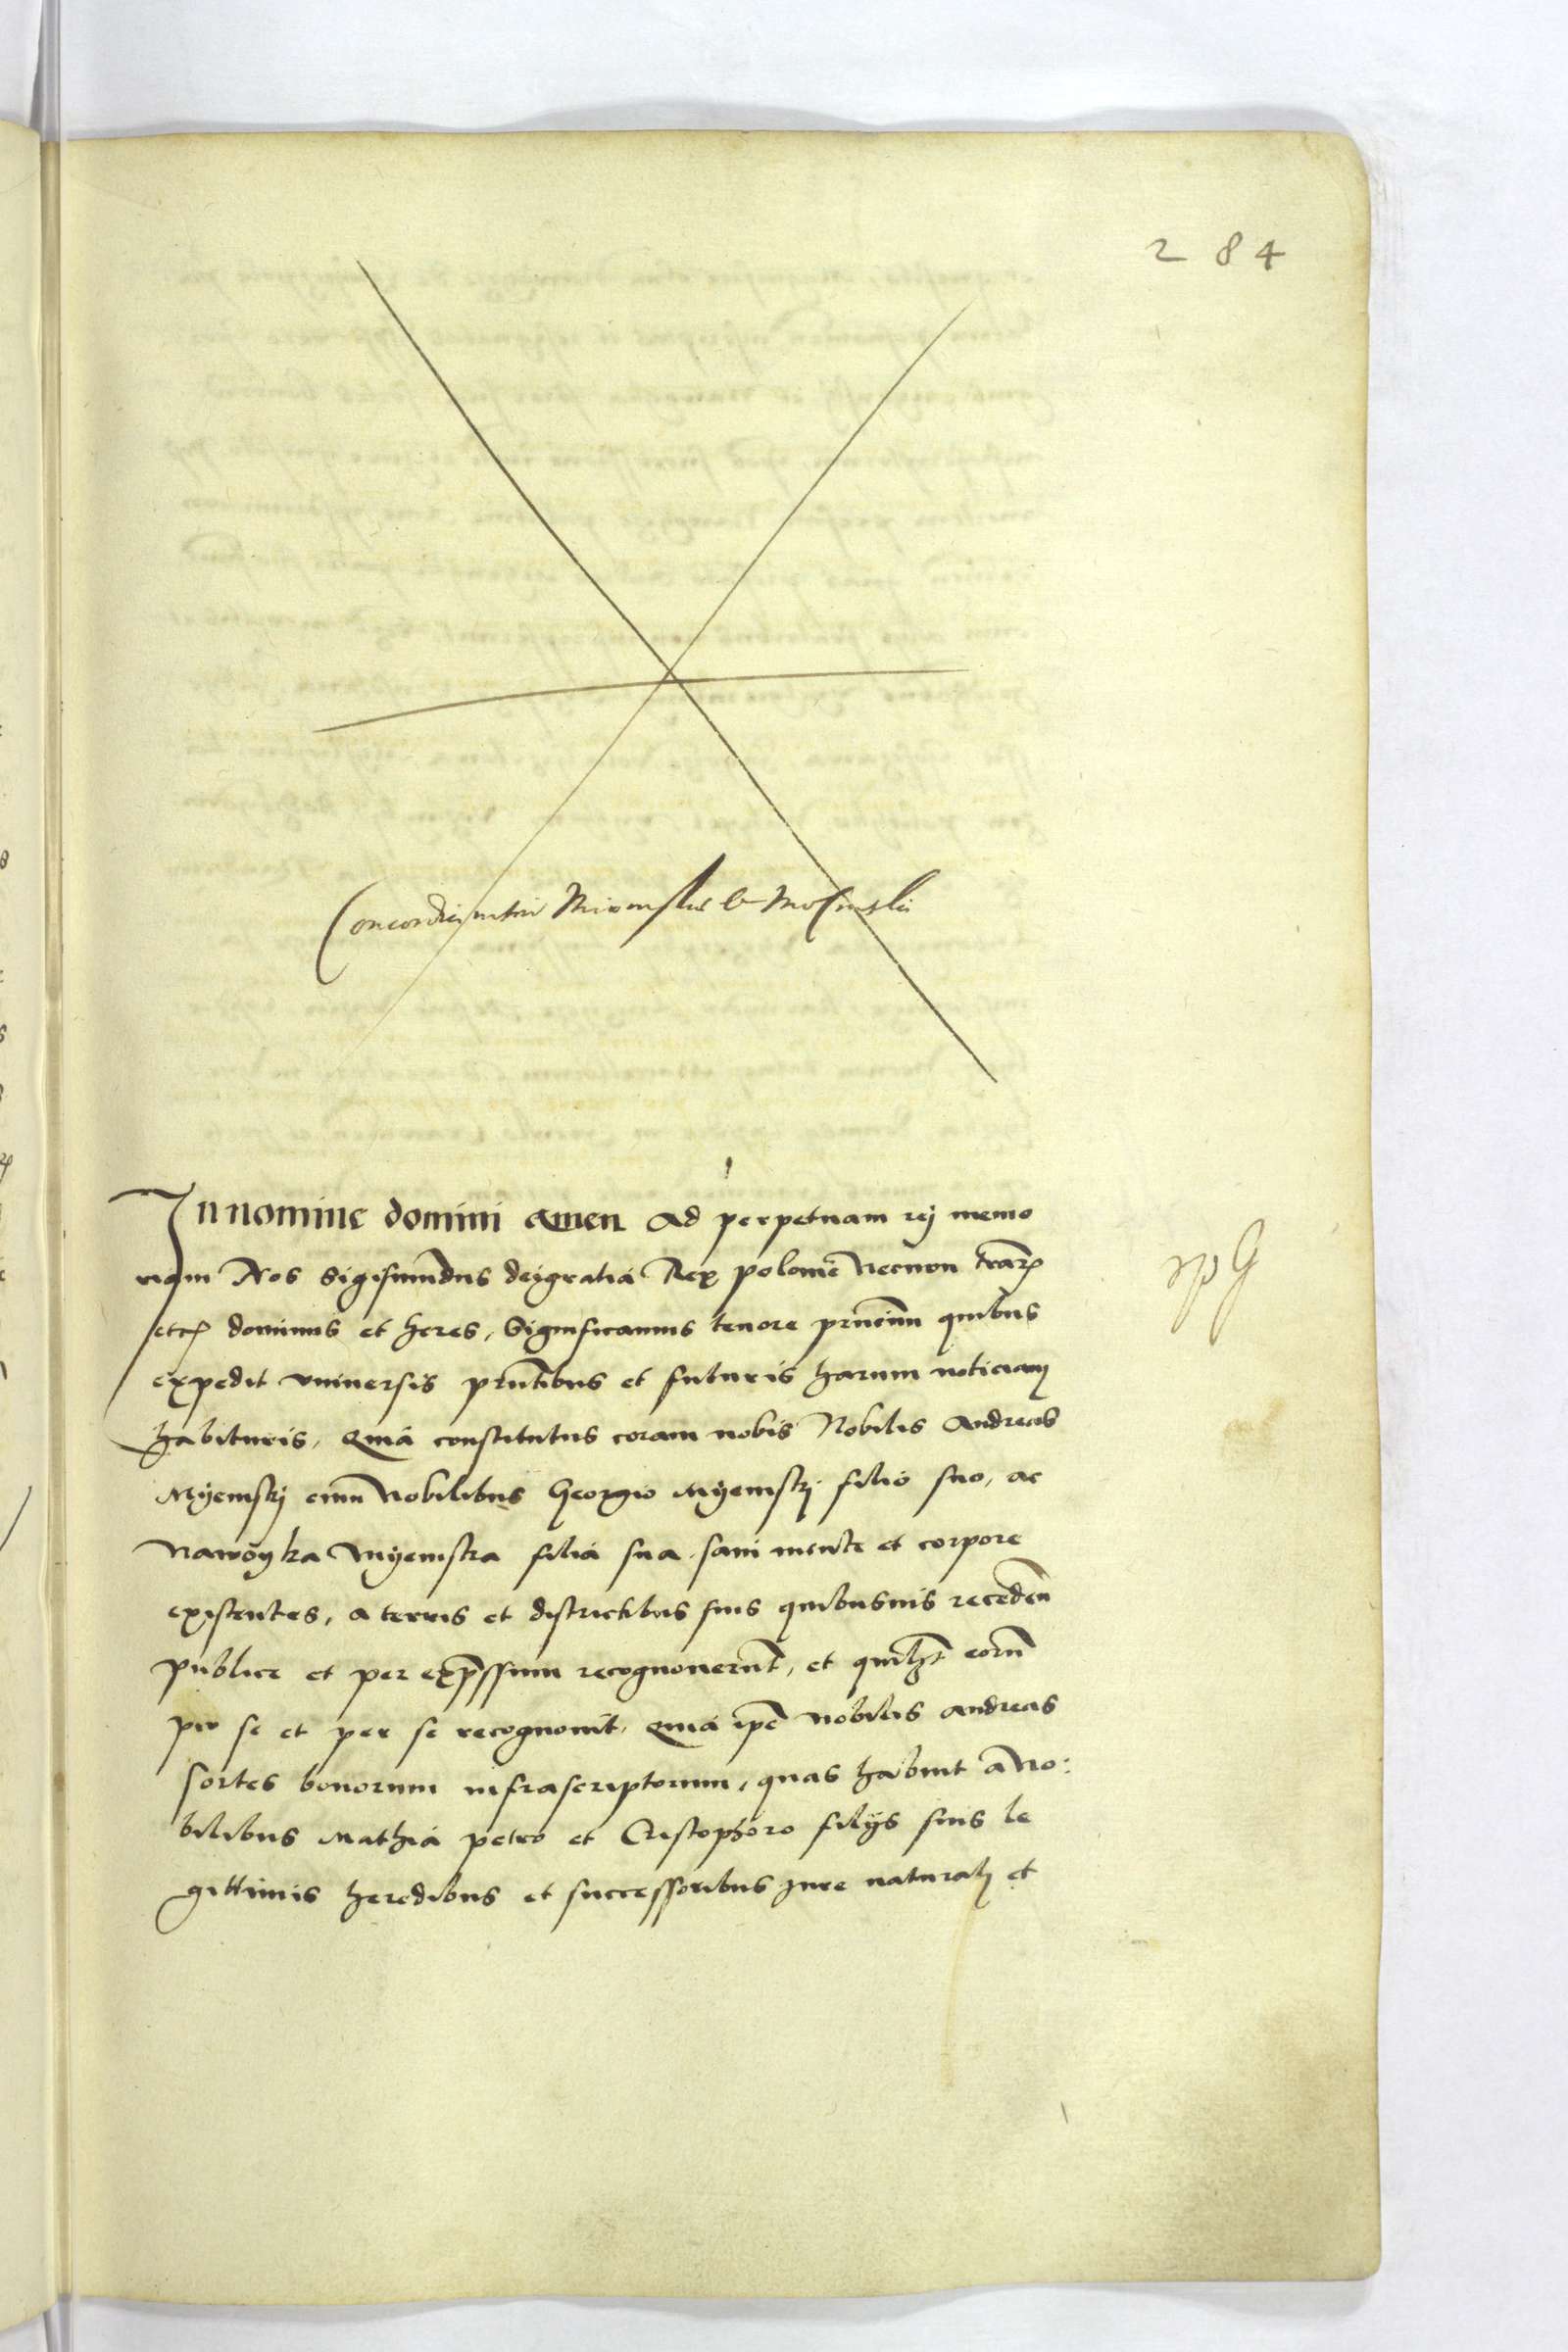 284
Concordia inter Miemskie &
In nomine domini amen Ad perpetuam rej memo
riam Nos Sigismundus deigratia Rex polonie Necnon trar
etc dominus et heres, Significamus tenore prncium quibus
expedit vniuersis prntibus et futuris harum noticiam
habituris, Quia constitutus coram nobis Nobilis Andreas
Myemskj cum Nobilibus Georgio Myemskj filio suo, ac
Nawoyka Myemska filia sua sani mente et corpore
existentes, a terris et districtibus suis quibusuis receden
publice et per expssum recognouerunt, et quilht eorum
pro se et per se recognouit, Quia ipe Nobilis Andreas
sortes bonorum infrascriptorum, quas habuit a No:
bilibus Mathia petro et Cristophoro filijs suis le
gittimis heredibus et successoribus jure naturalj et